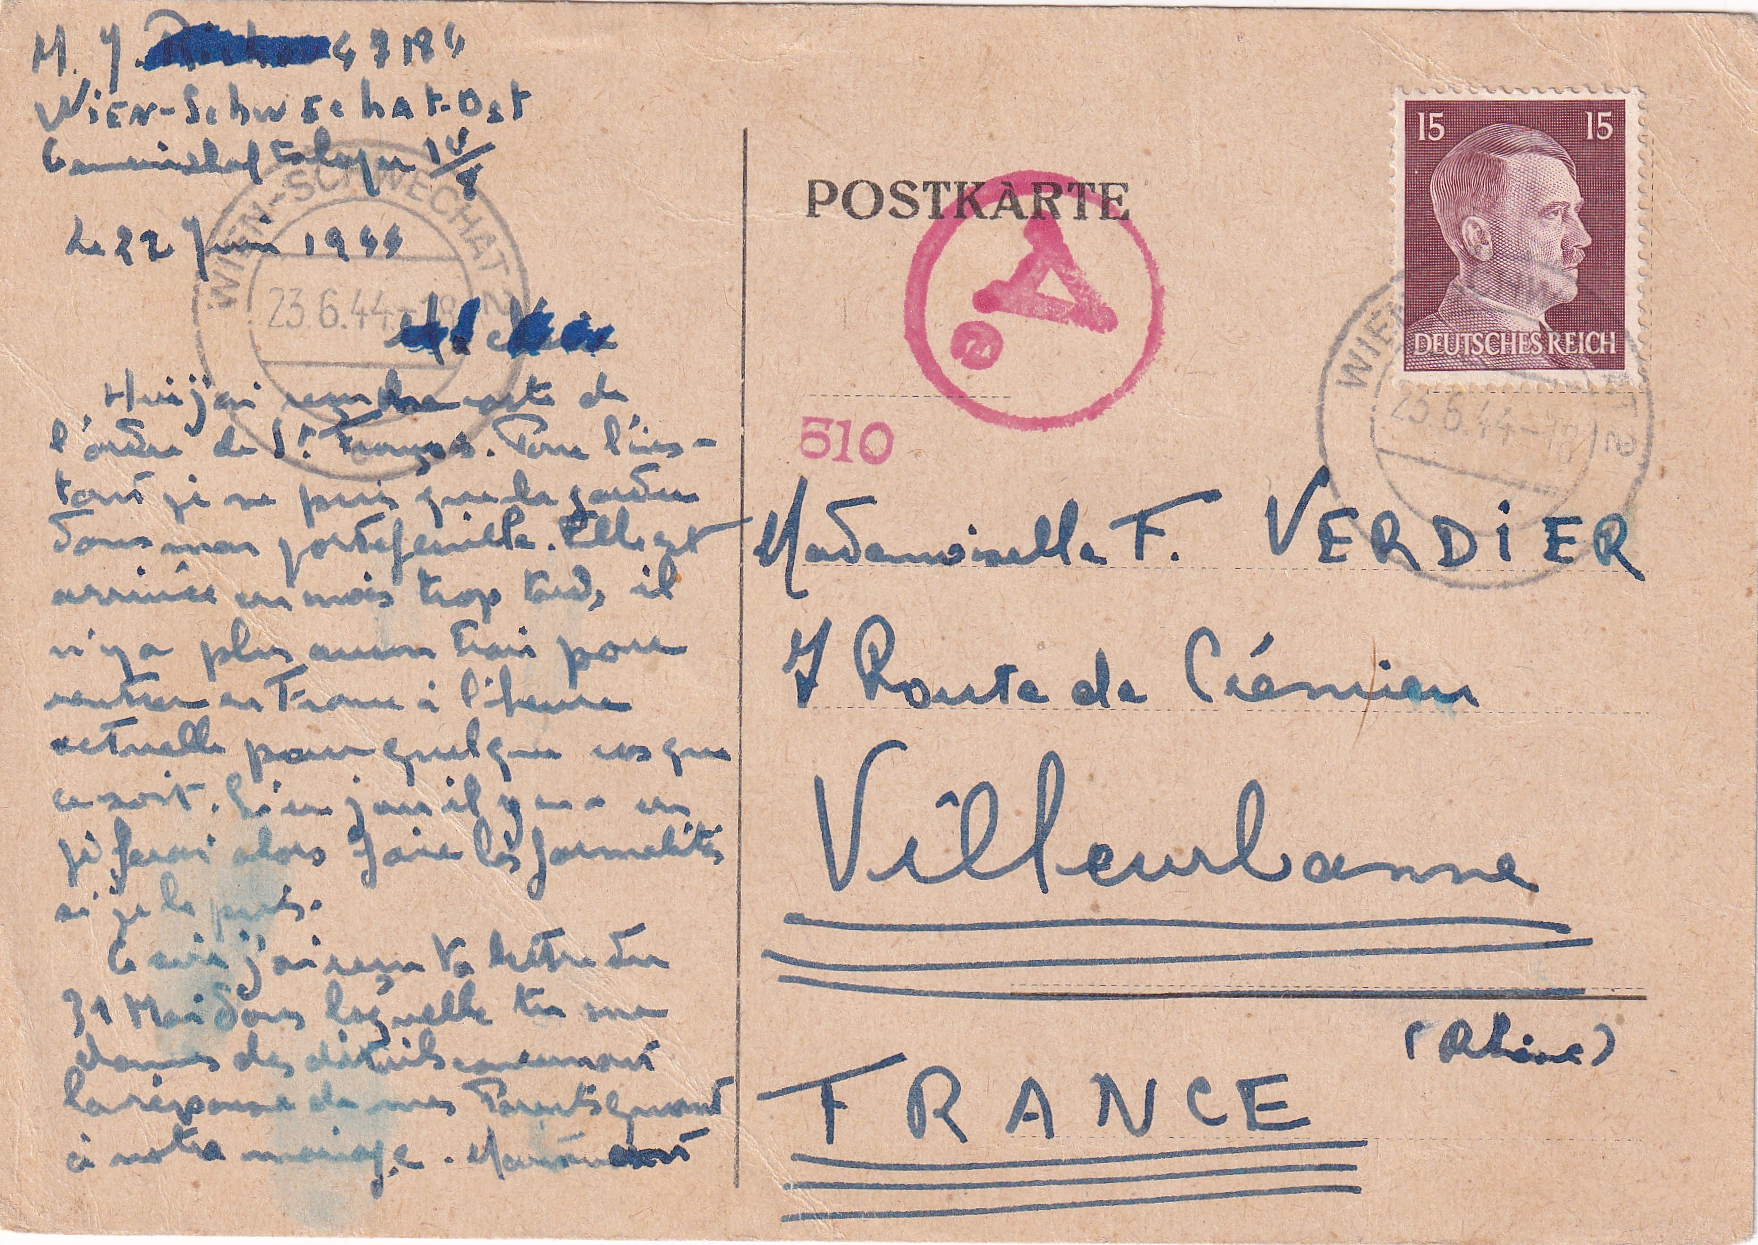 M. J. 47184
WIEN-SchwEchAt-Ost
Gemeinschaftslager IV/8
Le 22 Juin 1944
WIEN-SCHWECHAT 2
23.6.44-18
Ma chérie
Hier j'ai reçu ta carte de
l'ordre de St. François. Pour l'ins-
tant je ne puis que la garder
dans mon portefeuille. Elle est
arrivée un mois trop tard, il
n'y a plus aucun train pour
rentrer en France à l'heure
actuelle pour quelque cas que
ce soit. Si un jour il y en a un
je ferai alors faire les formalités
si je le puis.
Ce soir j'ai reçu ta lettre du
31 Mai dans laquelle tu me
donnes des détails concernant
la réponse de mes Parents quant
à notre mariage. Maintenant
POSTKARTE
A
a
510
15 15
DEUTSCHES REICH
WIEN 2
23.6.44-18
Mademoiselle F. VERDIER
7 Route de Crémieu
Villeurbanne
(Rhône)
FRANCE